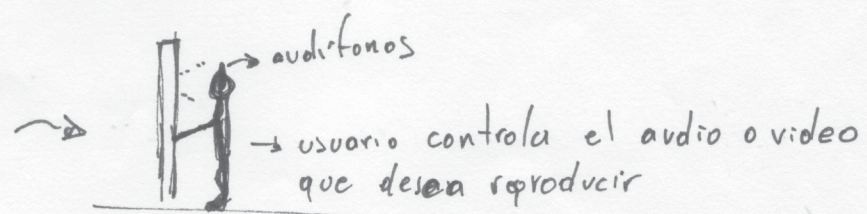 audífonos
usuario controla el audio o video
que desea reproducir